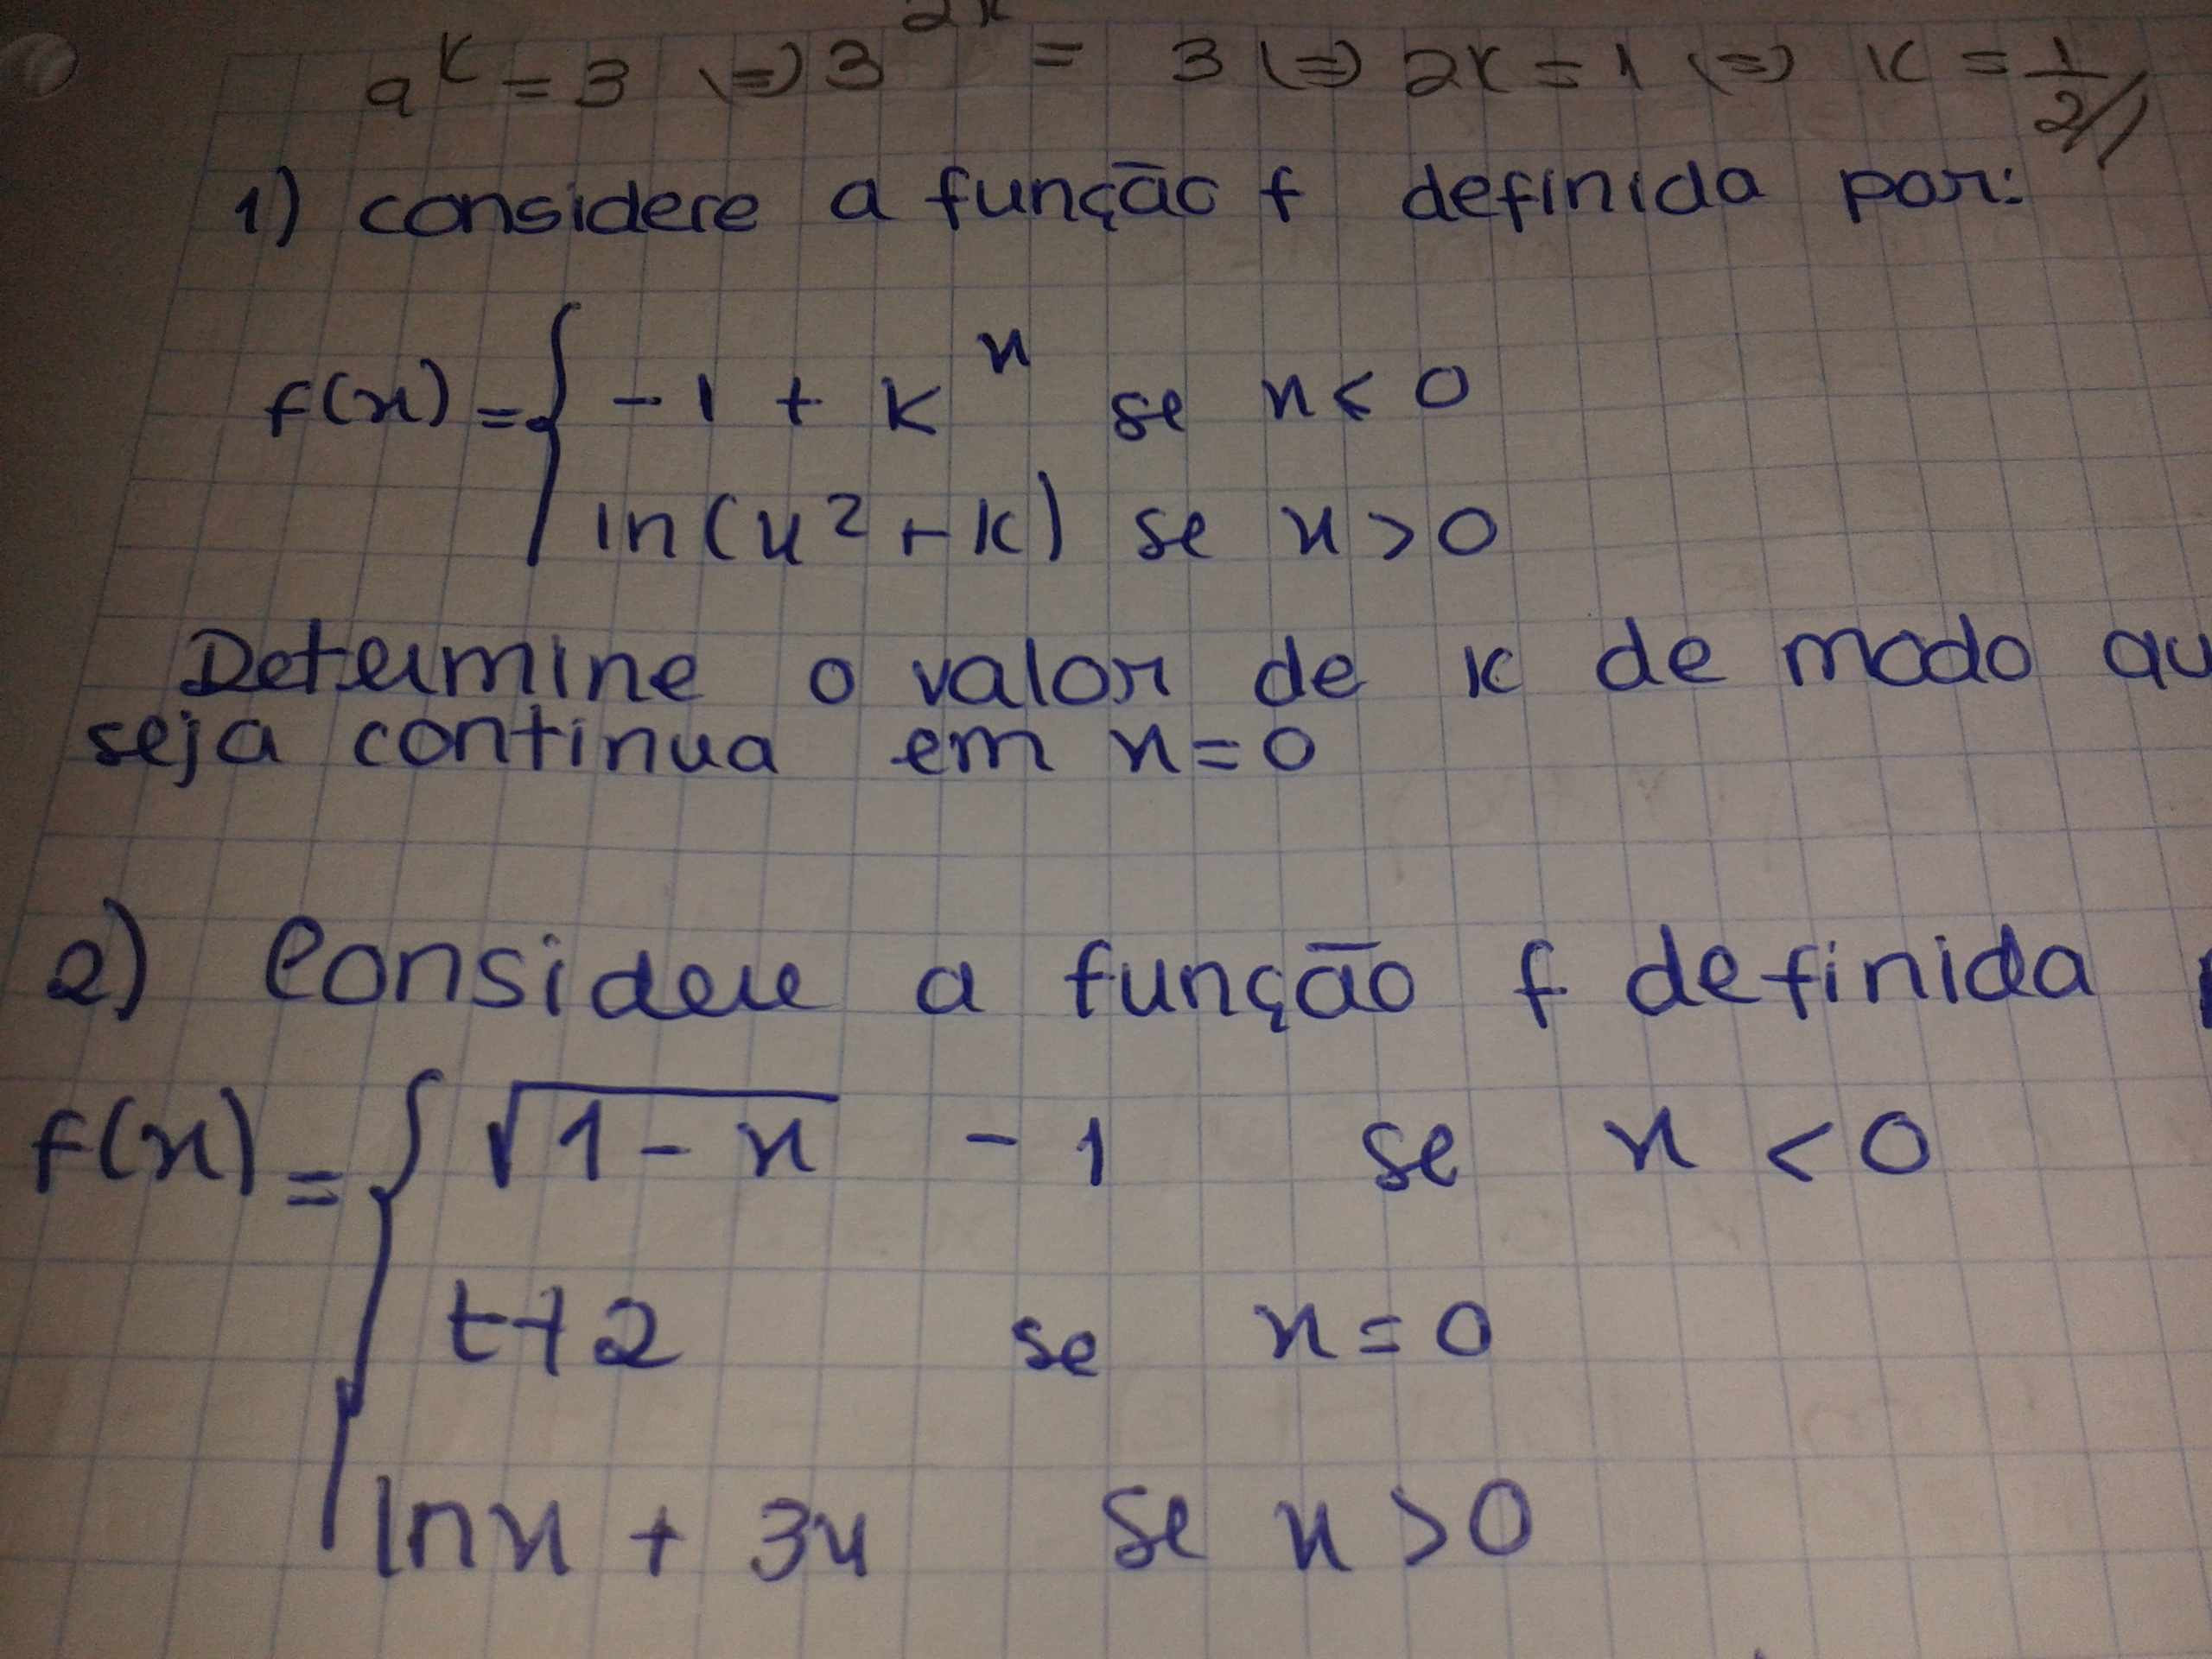 9^K = 3 (=) 3^2K = 3 (=) 2K = 1 (=) K = 1/2//
1) considere a função f definida por:
f(x) = { -1 + K^x se x < 0
ln(x² + K) se x > 0
Determine o valor de K de modo qu
seja continua em x = 0
2) Considere a função f definida
f(x) = { √1 - x - 1 se x < 0
t+2 se x = 0
ln x + 3x se x > 0